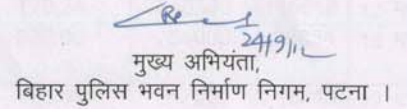 24/9/12
मुख्य अभियंता,
बिहार पुलिस भवन निर्माण निगम, पटना ।